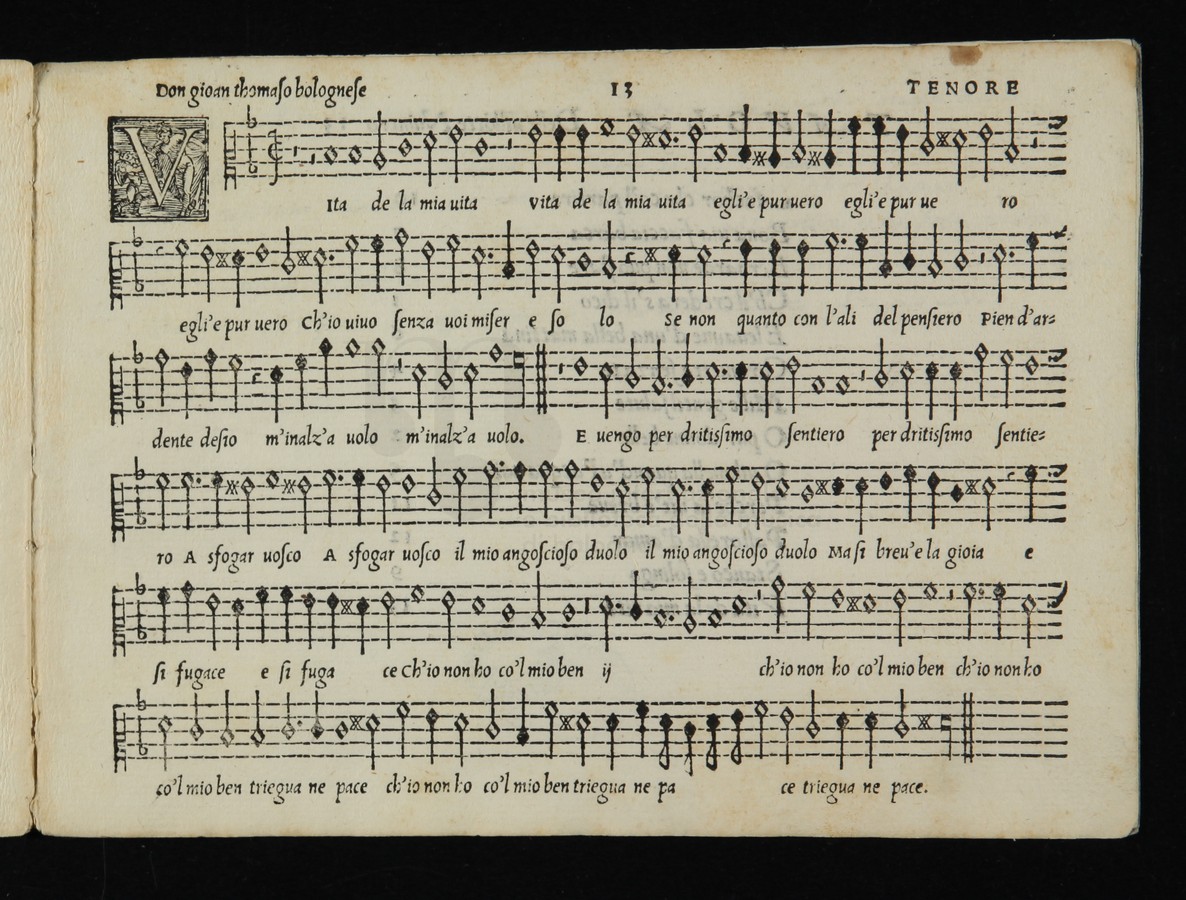 Don gioan thomaſo bologneſe 13 TENORE
VIta de la mia uita Vita de la mia uita egli'e pur uero egli'e pur ue ro
egli'e pur uero Ch'io uiuo ſenza uoi miſer e ſo lo Se non quanto con l'ali del penſiero Pien d'ar=
dente deſio m'inalz'a uolo m'inalz'a uolo. E uengo per dritiſſimo ſentiero per dritiſſimo ſentie=
ro A sfogar uoſco A sfogar uoſco il mio angoſcioſo duolo il mio angoſcioſo duolo Ma ſi breu'e la gioia e
ſi fugace e ſi fuga ce Ch'io non ho co'l mio ben ij ch'io non ho co'l mio ben ch'io non ho
co'l mio ben triegua ne pace ch'io non ho co'l mio ben triegua ne pa ce triegua ne pace.